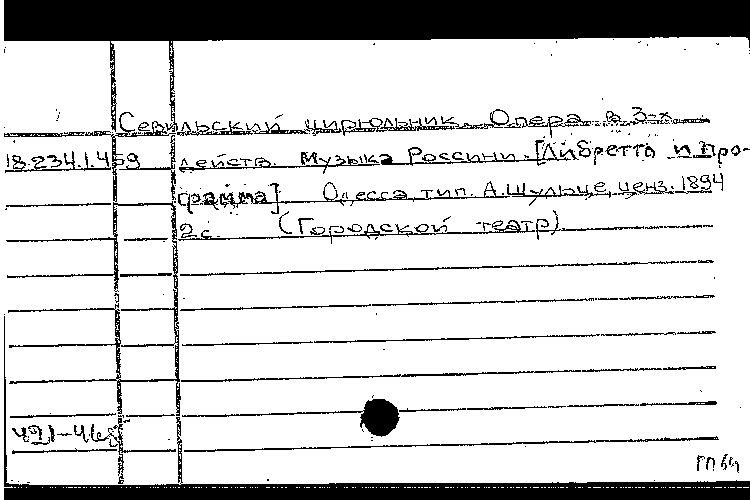 Севильский цирюльник. Опера в 3-х
18.234.1.459 действ. Музыка Россини. [Либретто и про-
грамма]. Одесса, тип. А. Шульце, ценз. 1894
2 с. (Городской театр).
ГП 64